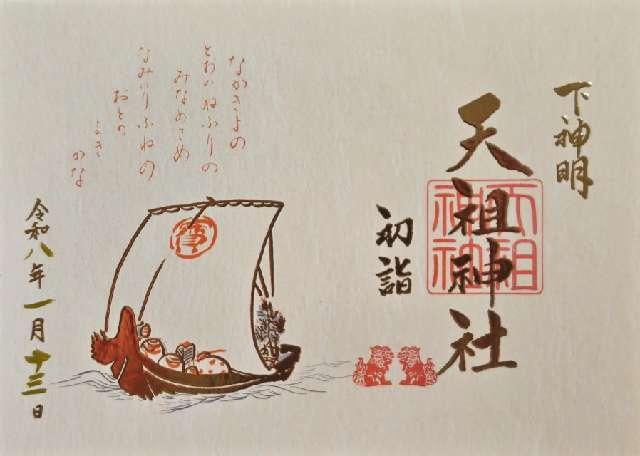 下神明
天祖神社
天祖神社
初詣
なかきよの
とおのねふりの
みなめさめ
なみのりふねの
おとの
よき
かな
寳
令和八年一月十三日